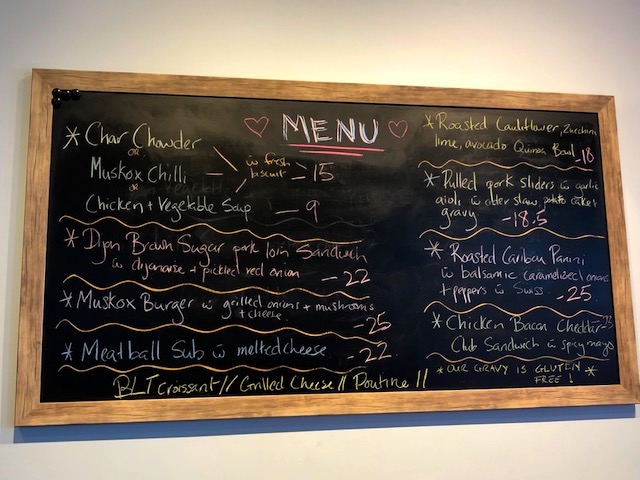 MENU
* Char Chowder
or
Muskox Chilli
or
w fresh
biscuit
- 15
Chicken + Vegetable Soup - 9
* Dijon Brown Sugar pork loin Sandwich
w dijonaise + pickled red onion - 22
* Muskox Burger w grilled onions + mushrooms
+ cheese. - 25
* Meatball Sub w melted cheese - 22.
BLT Croissant // Grilled Cheese // Poutine //
* Roasted Cauliflower, Zucchini,
lime, avocado Quinoa Bowl - 18
* Pulled pork sliders w garlic
aioli w slaw potato cake +
gravy - 18.5
* Roasted Caribou Panini
w balsamic caramelized onions
+ peppers w Swiss - 25.
* Chicken Bacon Cheddar - 23
Club Sandwich w spicy mayo
* OUR GRAVY IS GLUTEN
FREE! *